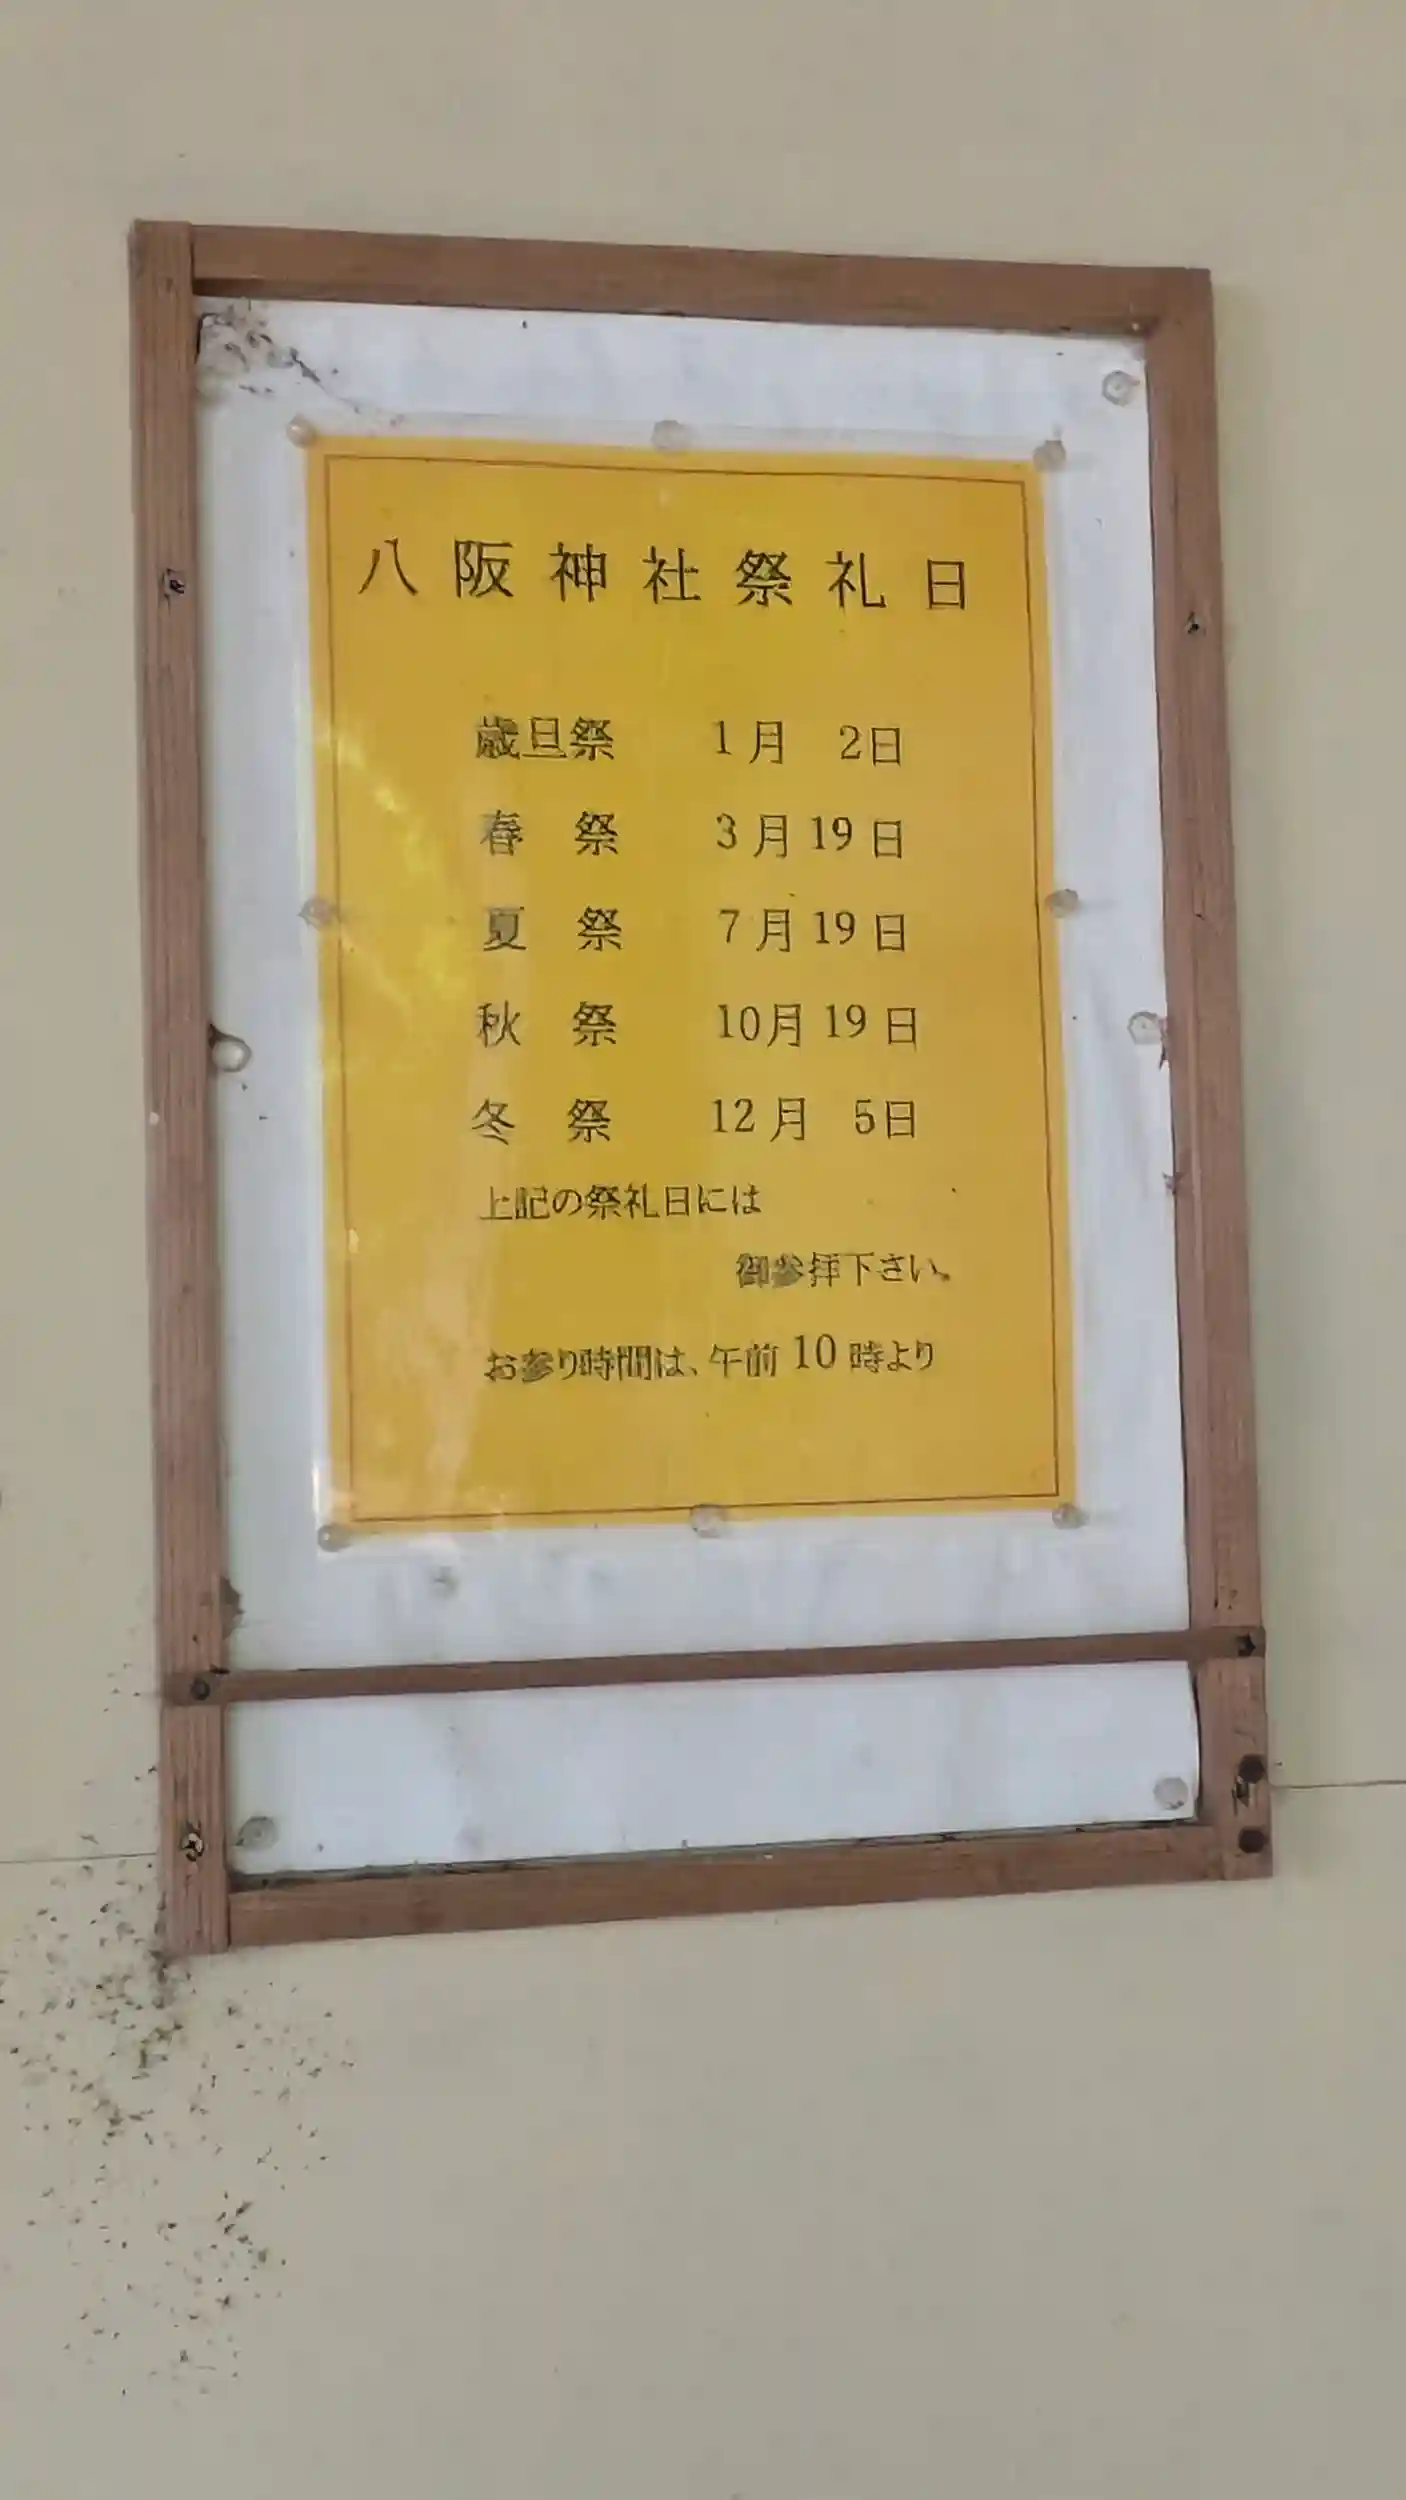 八阪神社祭礼日
歳旦祭 1月 2日
春 祭 3月19日
夏 祭 7月19日
秋 祭 10月19日
冬 祭 12月 5日
上記の祭礼日には
御参拝下さい。
お参り時間は、午前10時より